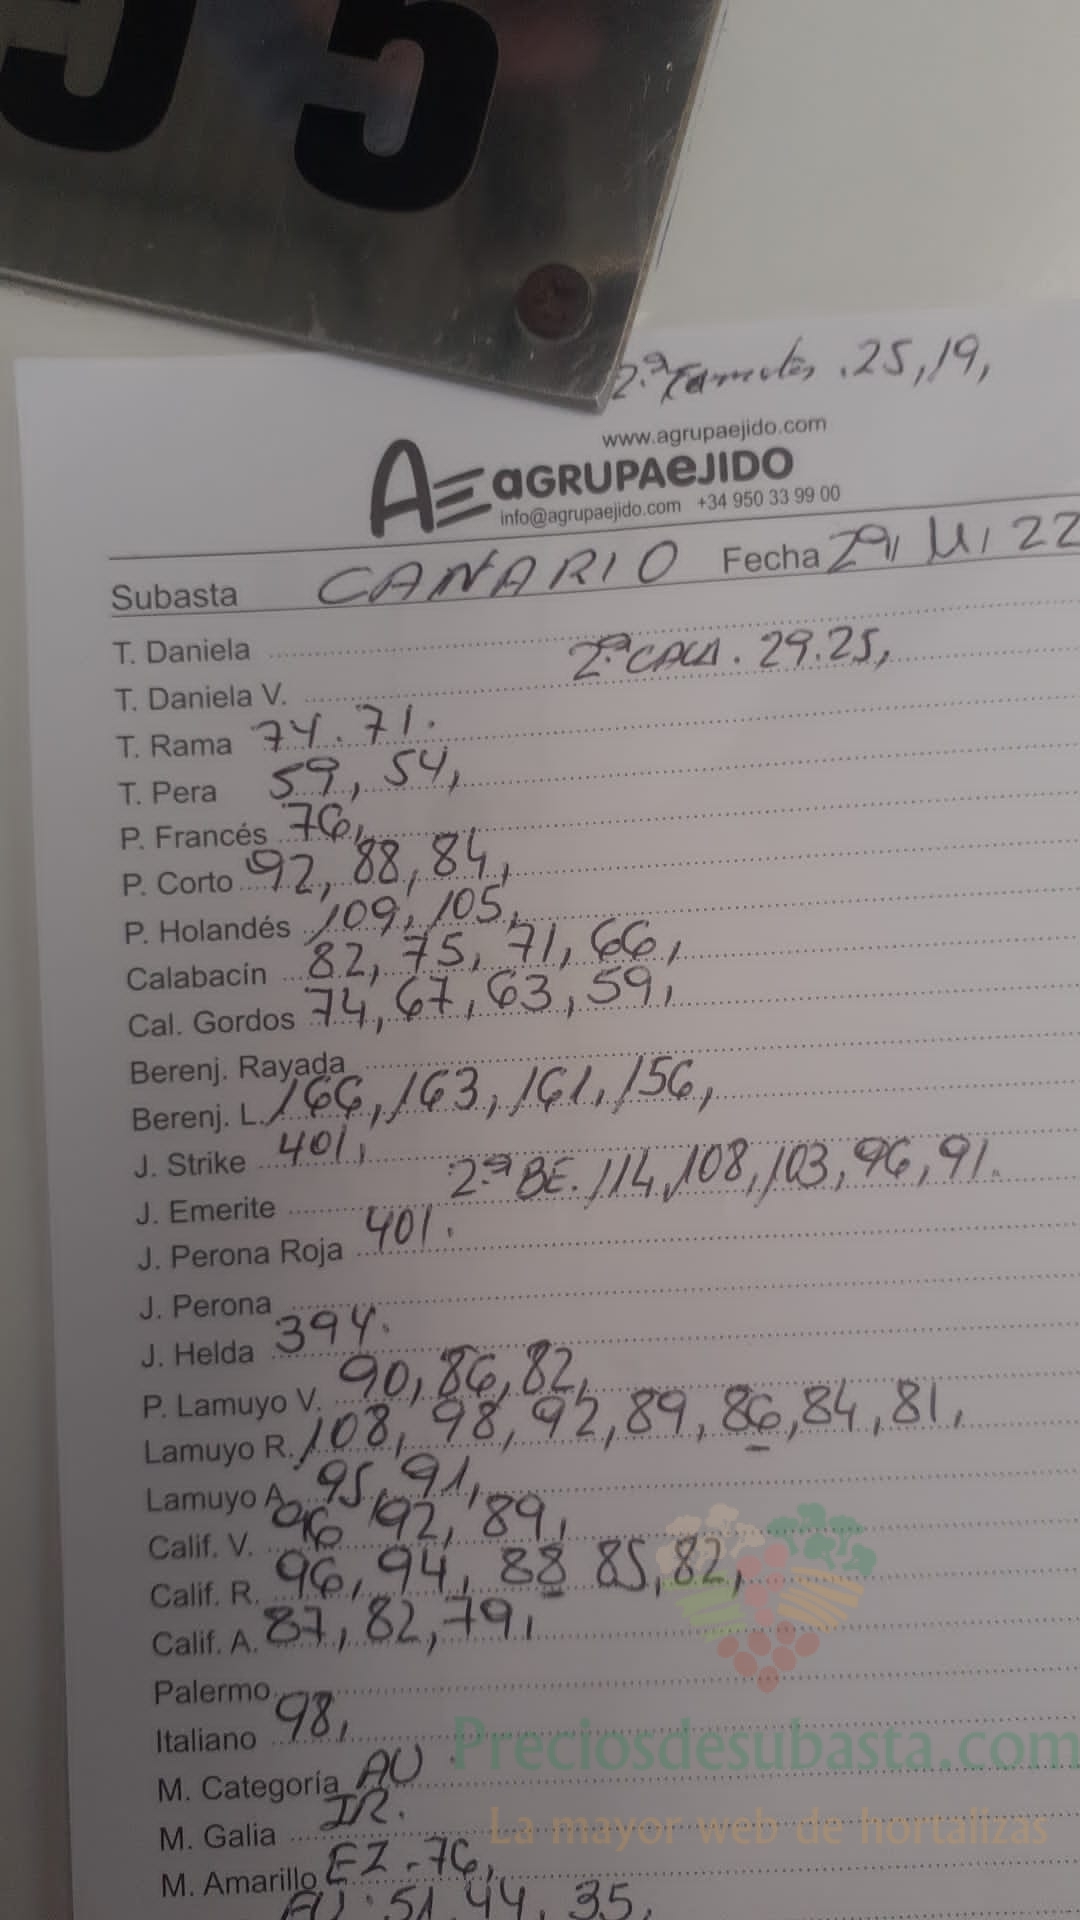 55
2ª Tamates .25,19,
www.agrupaejido.com
AE aGRUPAeJIDO
info@agrupaejido.com +34 950 33 99 00
Subasta CANARIO Fecha 29, 11, 22
T. Daniela
2ª CALA. 29.25,
T. Daniela V.
T. Rama 74.71.
T. Pera 59, 54,
P. Francés 76,
P. Corto 92, 88, 84,
P. Holandés 109, 105,
Calabacín 82, 75, 71, 66,
Cal. Gordos 74, 67, 63, 59,
Berenj. Rayada
Berenj. L. 166, 163, 161, 156,
J. Strike 401,
2ª BE. 114, 108, 103, 96, 91.
J. Emerite
J. Perona Roja 401.
J. Perona
J. Helda 394.
P. Lamuyo V. 90, 86, 82,
Lamuyo R. 108, 98, 92, 89, 86, 84, 81,
Lamuyo A. 95, 91,
Calif. V. 96 92, 89,
Calif. R. 96, 94, 88 85, 82,
Calif. A. 87, 82, 79,
Palermo
Italiano 98,
Preciosdesubasta.com
M. Categoría AU
M. Galia IR.
La mayor web de hortalizas
M. Amarillo EZ-76,
51, 44, 35,